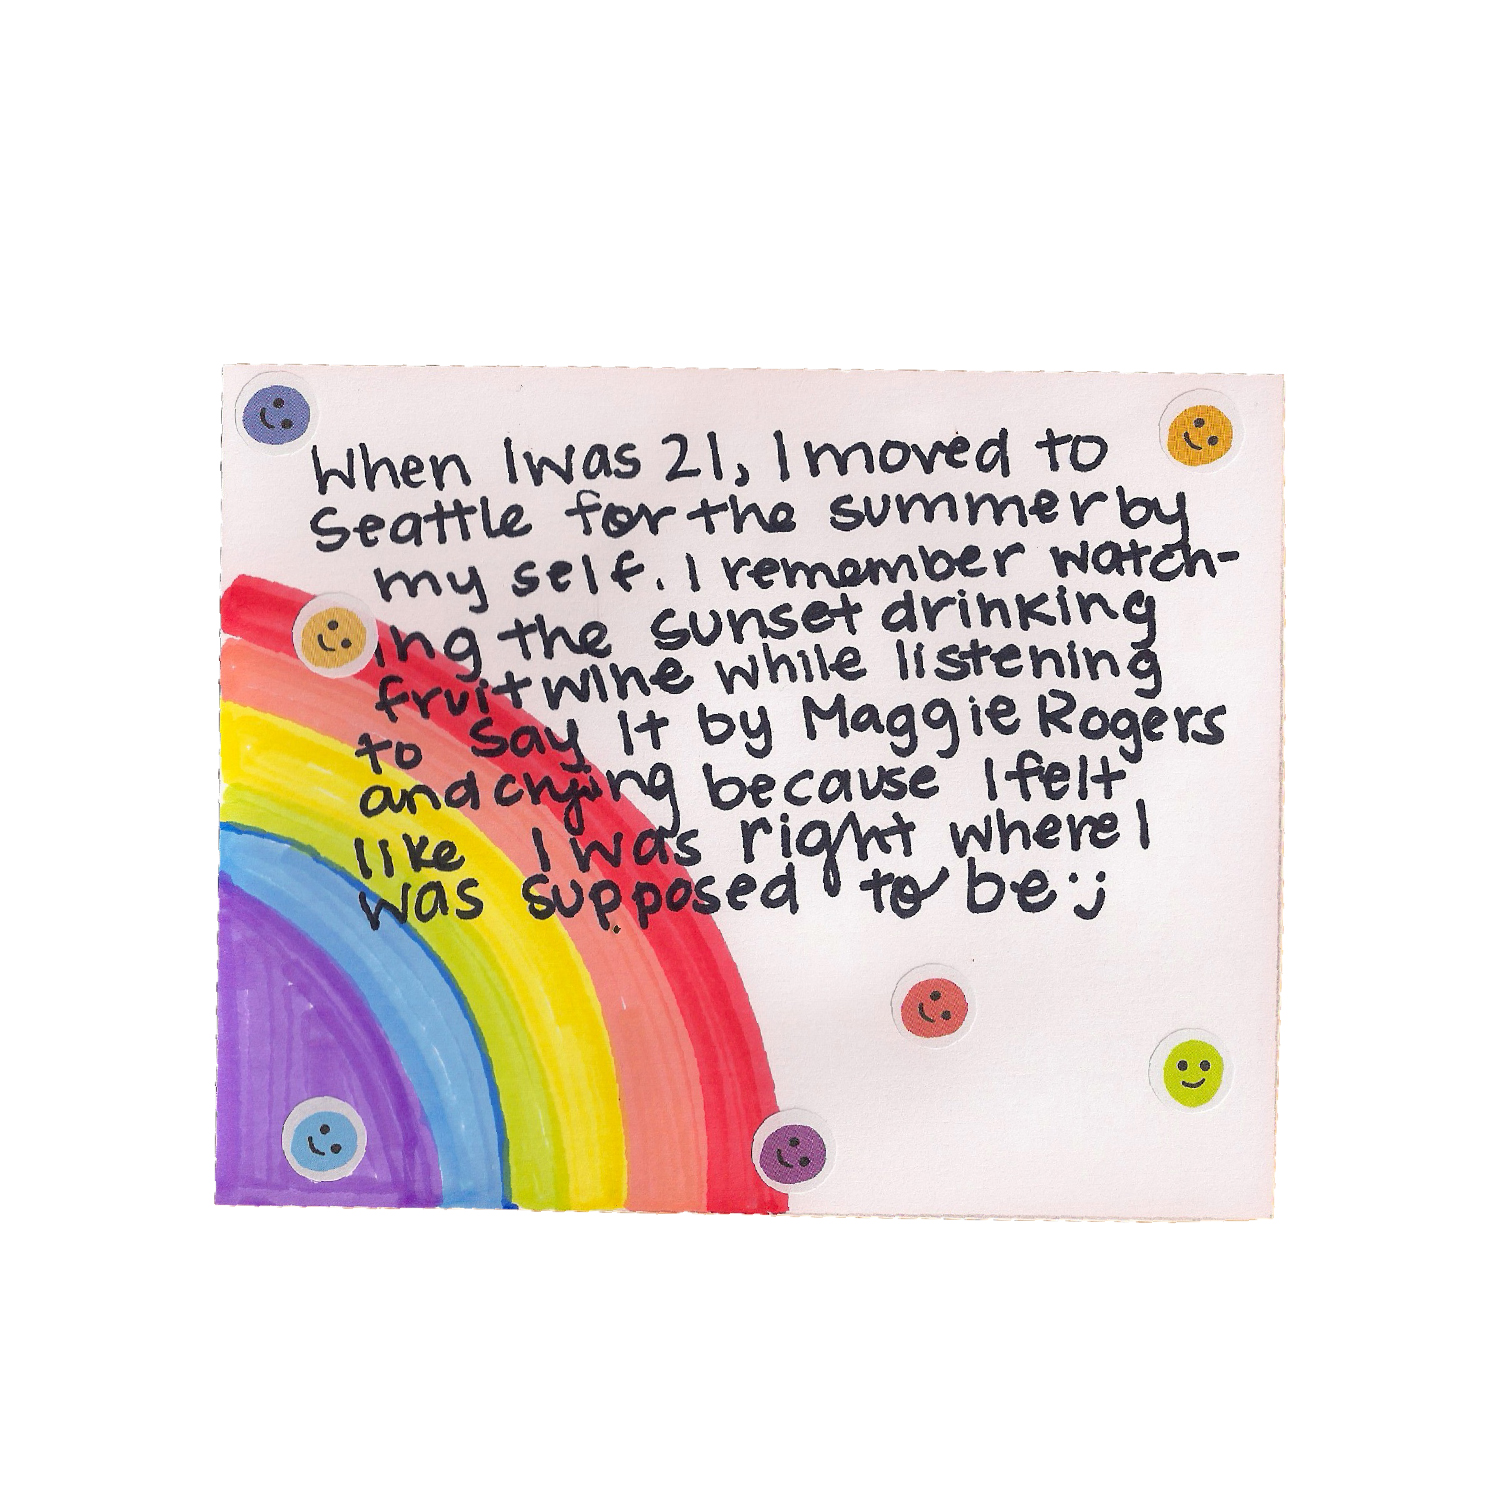 When I was 21, I moved to
Seattle for the summer by
my self. I remember watch-
ing the sunset drinking
fruit wine while listening
to Say It by Maggie Rogers
and crying because I felt
like I was right where I
was supposed to be :)